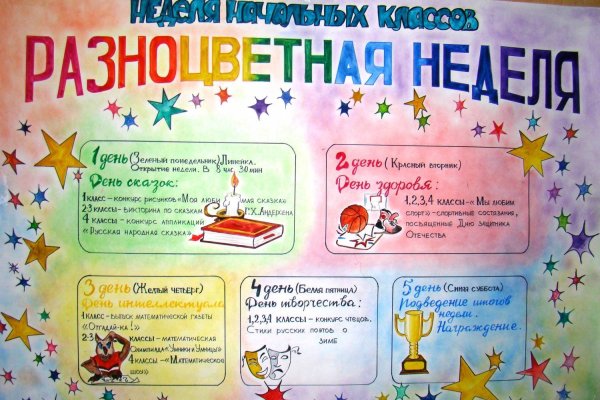 НЕДЕЛЯ НАЧАЛЬНЫХ КЛАССОВ
РАЗНОЦВЕТНАЯ НЕДЕЛЯ
1 день (Зеленый понедельник) Линейка.
Открытие недели. В 8 час. 30 мин
День сказок:
1 класс - конкурс рисунков «Моя люби мая сказка»
2-3 классы - викторина по сказкам Г.Х. Андерсена
4 классы - конкурс аппликаций
«Русская народная сказка»
2 день (Красный вторник)
День здоровья:
1,2,3,4 классы - «Мы любим
спорт» - спортивные состязания,
посвященные Дню защитника
Отечества
3 день (Желтый четверг)
День интеллектуала
1 класс - выпуск математической газеты
«Отгадай-ка!»
2-3 классы - математическая
Олимпиада «Умники и Умницы»
4 классы - «Математическое
шоу»
4 день (Белая пятница)
День творчества:
1,2,3,4 классы - конкурс чтецов.
Стихи русских поэтов о
зиме
5 день (Синяя суббота)
Подведение итогов
недели.
Награждение.